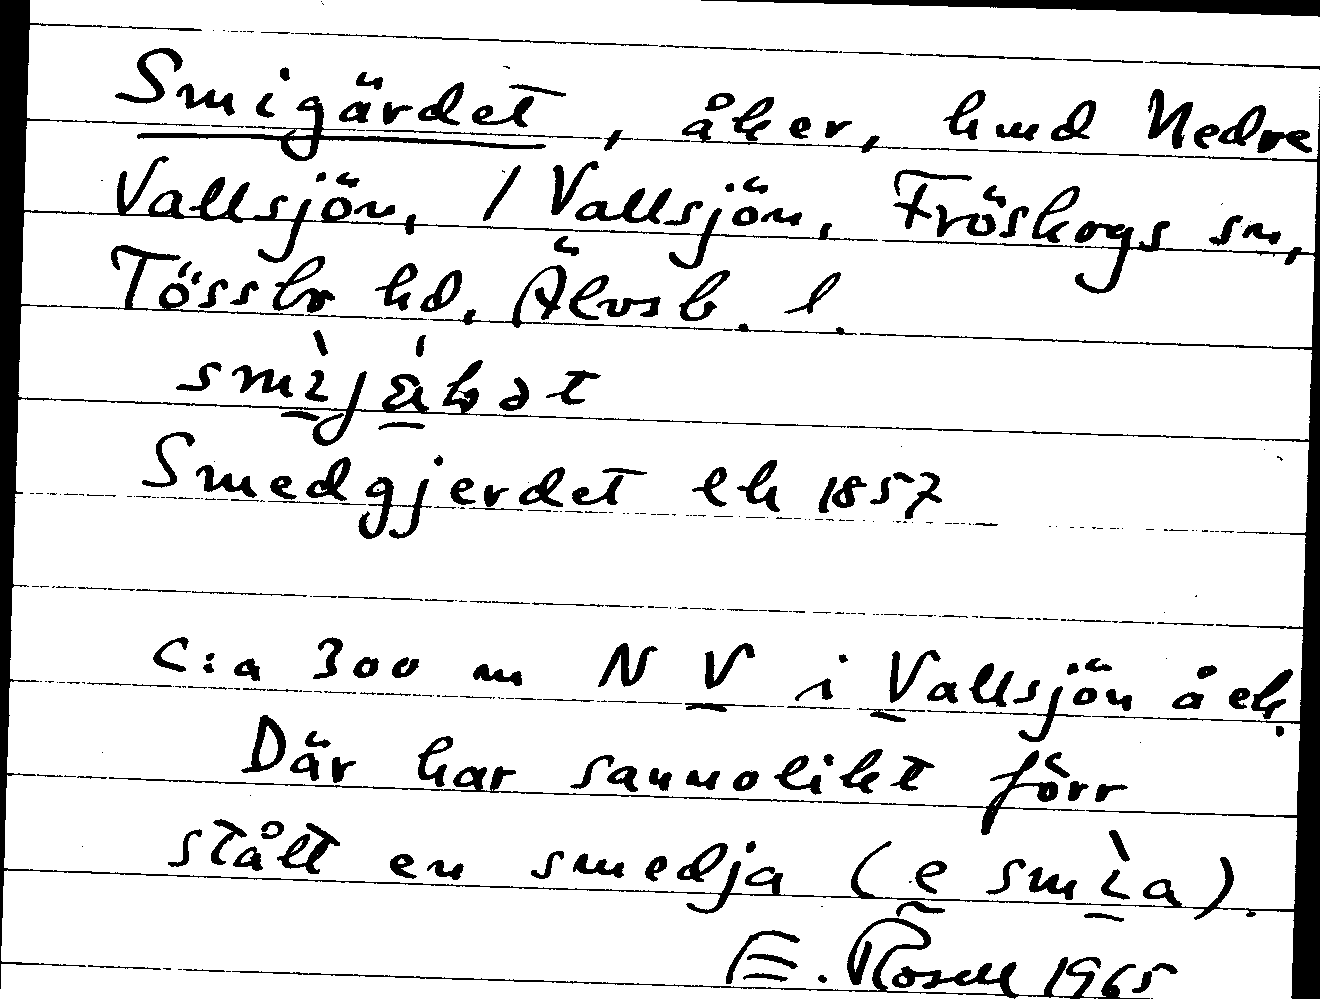 Smigärdet, åker, hmd Nedre
Vallsjön, / Vallsjön, Fröskogs sn,
Tössbo hd. Älvsb. l.
Smedgjerdet ek 1857
C:a 300 m N V i Vallsjön å ek.
Där har sannolikt förr
stått en smedja (e smìa).
E. Rosell 1965